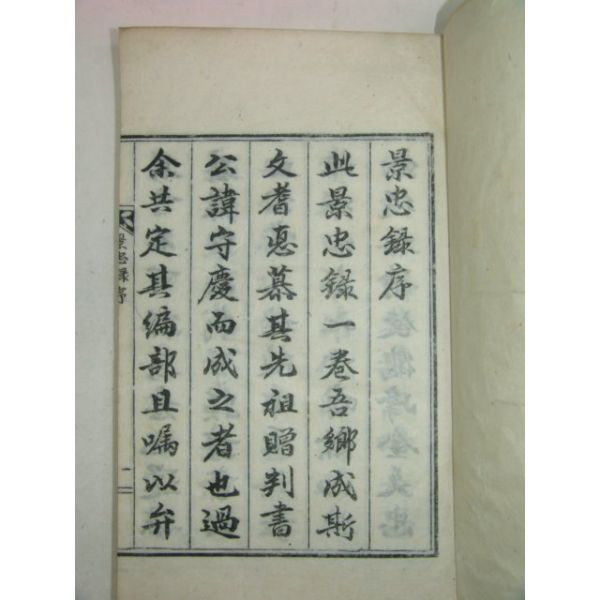 景忠錄序
此景忠錄一卷吾鄉成斯
文耆悳慕其先祖贈判書
公諱守慶而成之者也過
余共定其編部且嘱以弁
景忠錄序
二